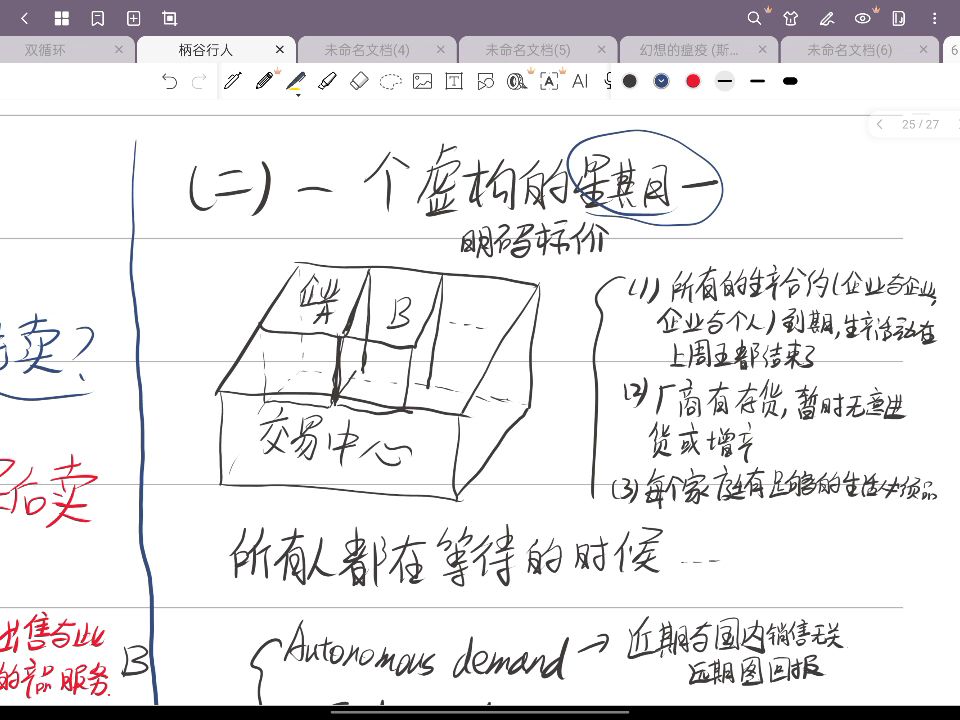 双循环
柄谷行人
未命名文档(4)
未命名文档(5)
幻想的瘟疫 (斯...
未命名文档(6)
6
T
A
AI
25 / 27
(二) 一个虚构的星期一
明码标价
企业
A
B
交易中心
(1) 所有的生产合约(企业与企业,
企业与个人)到期,生产活动在
上周五都结束了
(2) 厂商有存货,暂时无意进
货或增产
(3) 每个家庭有足够的生活必须品
所有人都在等待的时候 ...
卖?
后卖
出售与此
的产品服务.
B
Autonomous demand → 近期与国内销售无关
近期图回报